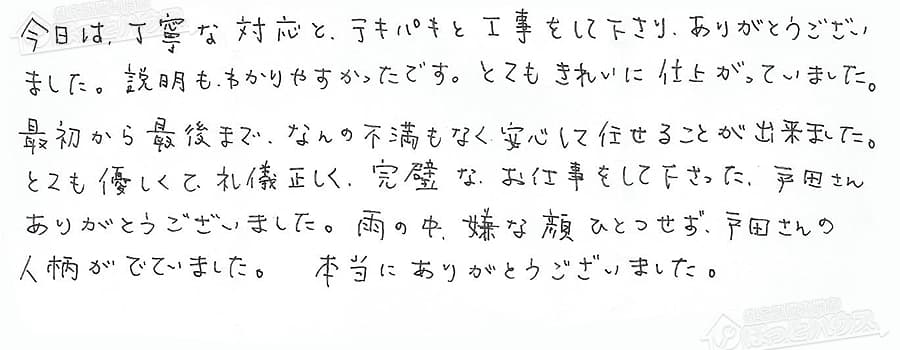 今日は、丁寧な対応と、テキパキと工事をして下さり、ありがとうござい
ました。説明も、わかりやすかったです。とてもきれいに仕上がっていました。
最初から最後まで、なんの不満もなく安心して任せることが出来ました。
とても優しくて、礼儀正しく、完璧な、お仕事をして下さった、戸田さん
ありがとうございました。雨の中、嫌な顔ひとつせず、戸田さんの
人柄がでていました。 本当にありがとうございました。